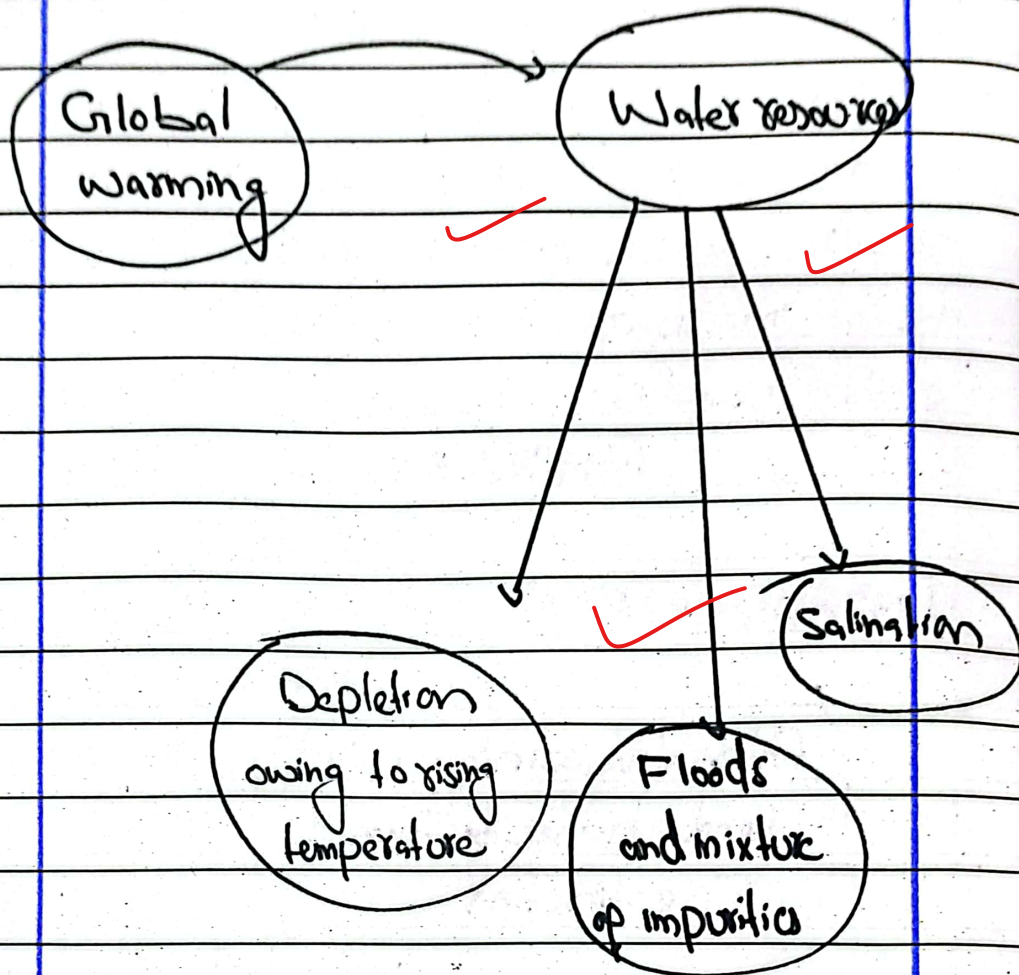 Global
warming
Water resources
Salination
Depletion
owing to rising
temperature
Floods
and mixture
of impurities